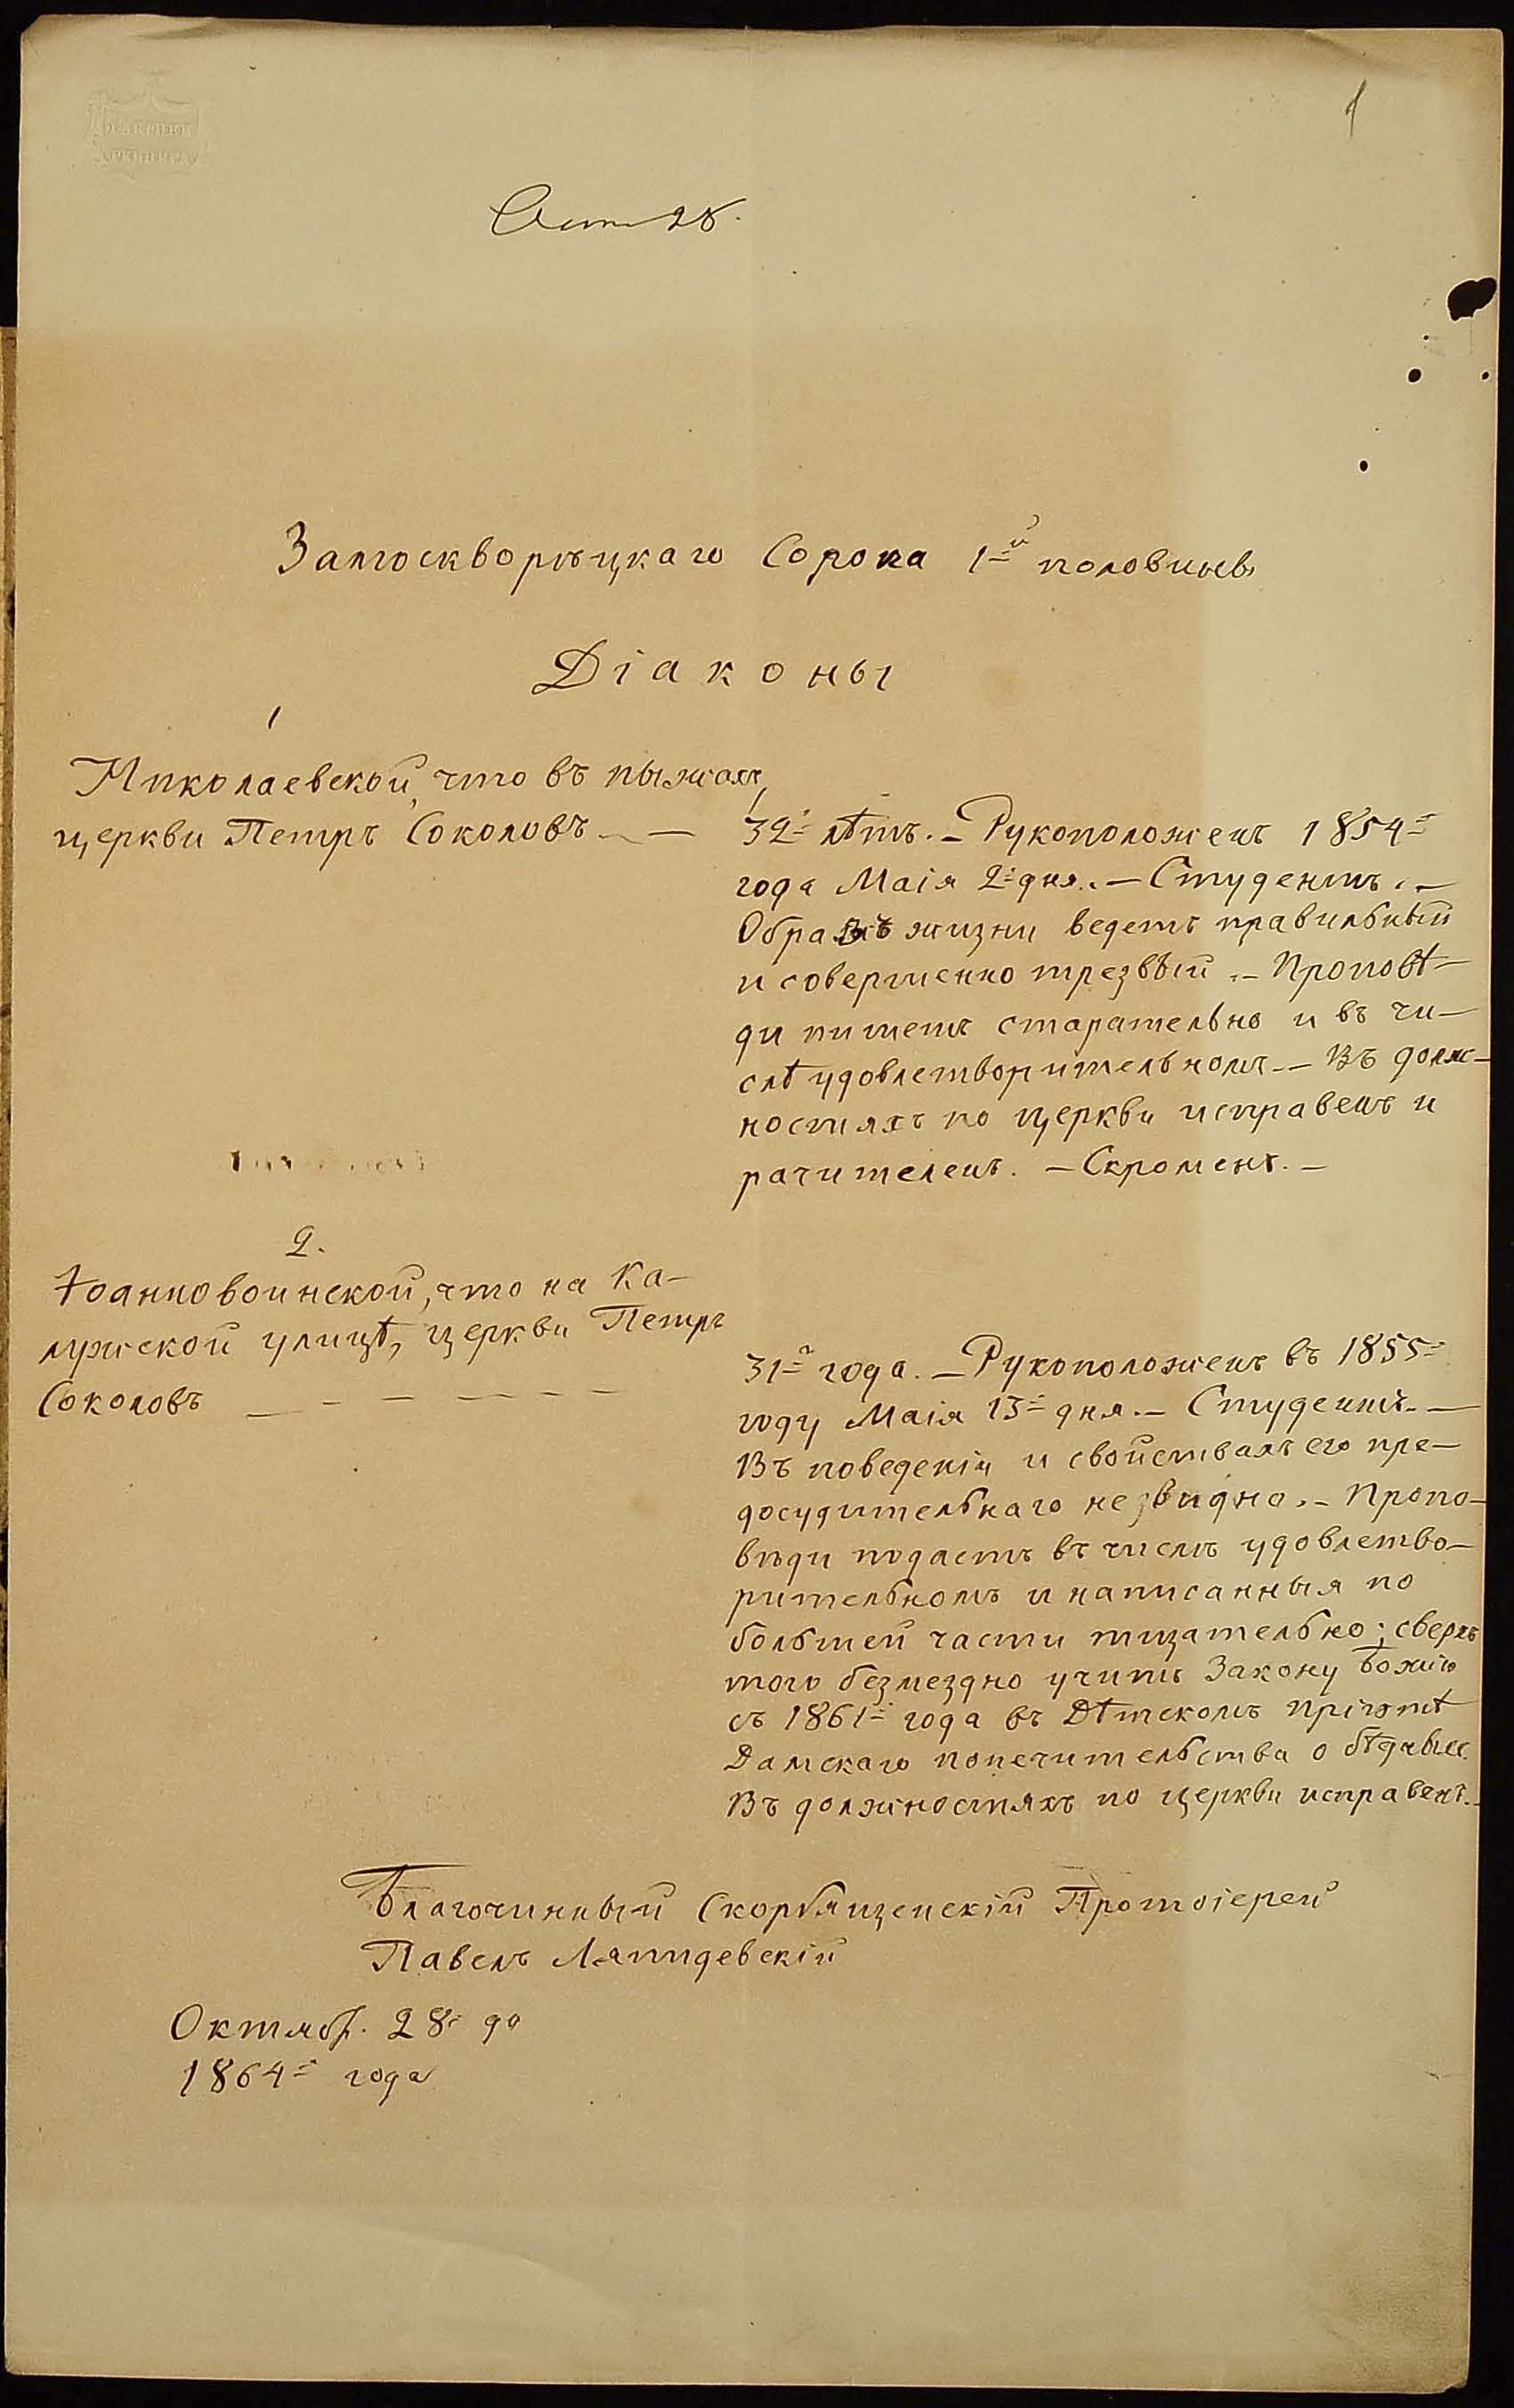 1
Окт 28.
Замоскворѣцкаго Сорока 1-й половины
Діаконы
1
Николаевской, что въ пыжахъ,
церкви Петръ Соколовъ — —
32-хъ лѣтъ. — Рукоположенъ 1854-го
года Маія 2-го дня. — Студентъ. —
Образъ жизни ведетъ правильный
и совершенно трезвый. — Проповѣ—
ди пишетъ старательно и въ чи—
слѣ удовлетворительномъ. — Въ долж—
ностяхъ по церкви исправенъ и
рачителенъ. — Скроменъ. —
2.
Іоанновоинской, что на Ка—
лужской улицѣ, церкви Петръ
Соколовъ — — — — — —
31-го года. — Рукоположенъ въ 1855-мъ
году Маія 13-го дня. — Студентъ. —
Въ поведеніи и свойствахъ его пре—
досудительнаго не видно. — Пропо—
вѣди подаетъ въ числѣ удовлетво—
рительномъ и написанныя по
большей части тщательно; сверхъ
того безмездно учитъ Закону Божію
съ 1861-го года въ Дѣтскомъ пріютѣ
Дамскаго попечительства о бѣдныхъ.
Въ должностяхъ по церкви исправенъ. —
Благочинный Скорбященскій Протоіерей
Павелъ Лапидевскій
Октябр. 28-го дня
1864-го года